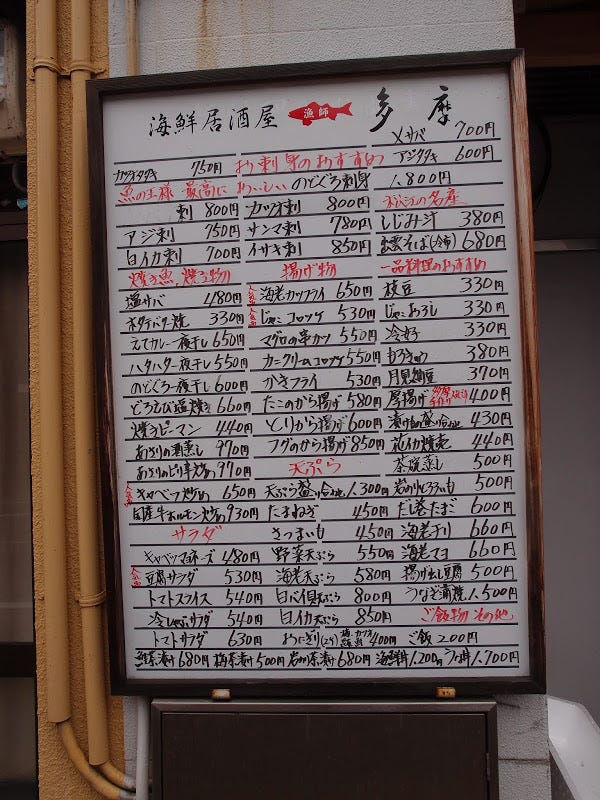 海鮮居酒屋 漁師 多摩
メサバ 700円
カツオタタキ 750円 お刺身のおすすめ アジタタキ 600円
魚の王様 最高に おいしい のどぐろ刺身 1.800円
刺 800円 カツオ刺 800円 名産
アジ刺 750円 サンマ刺 780円 しじみ汁 380円
白イカ刺 700円 イサキ刺 850円 出雲そば(冷) 680円
焼き魚、焼き物 揚げ物 一品料理のおすすめ
塩サバ 480円 人気 海老カツフライ 650円 枝豆 330円
ホタテバター焼 330円 人気 じゃこコロッケ 530円 じゃこおろし 330円
えてカレー夜干し 650円 マグロの串カツ 550円 冷奴 330円
ハタハタ一夜干し 550円 カニクリームコロッケ 550円 もろきゅう 380円
のどぐろ一夜干し 600円 かきフライ 530円 月見納豆 370円
どろえび塩焼き 660円 たこのから揚げ 580円 厚揚げ 400円
焼きピーマン 440円 とりから揚げ 600円 漬け物盛り合わせ 430円
あさりの酒蒸し 970円 フグのから揚げ 850円 花イカ焼売 440円
あさりのピリ辛炒め 970円 天ぷら 茶碗蒸し 500円
人気 キャベツ炒め 650円 天ぷら盛り合わせ 1.300円 岩のりとろろいも 500円
国産牛ホルモン炒め 930円 たまねぎ 450円 だし巻たまご 600円
サラダ さつまいも 450円 海老チリ 660円
キャベツマヨネーズ 480円 野菜天ぷら 550円 海老マヨ 660円
人気 豆腐サラダ 530円 海老天ぷら 580円 揚げ出し豆腐 500円
トマトスライス 540円 白バイ貝天ぷら 800円 うなぎ蒲焼 1.500円
冷しゃぶサラダ 540円 白イカ天ぷら 850円 ご飯物 その他
トマトサラダ 630円 おにぎり(2ケ) 400円 ご飯 200円
鮭茶漬け 680円 梅茶漬け 500円 岩のり茶漬け 680円 海鮮丼 1.200円 うな丼 1.700円